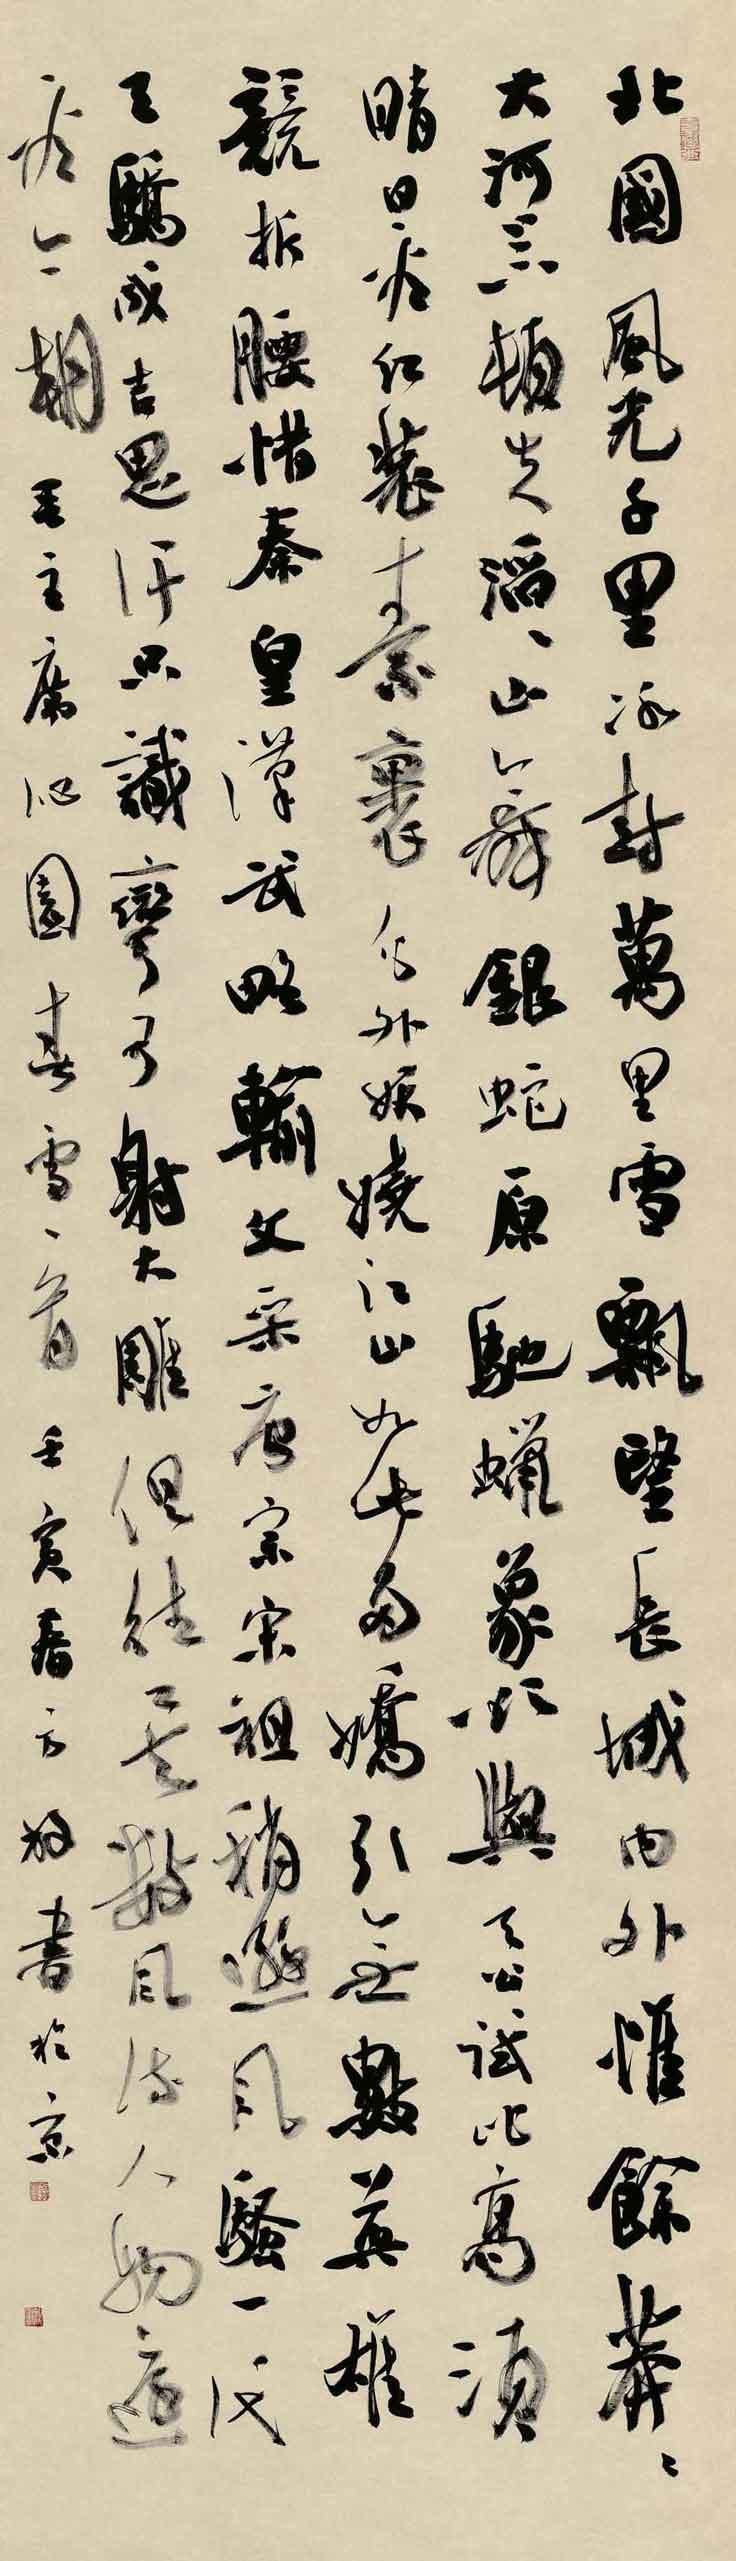 北國風光千里冰封萬里雪飄望長城內外惟餘莽〻
大河上下頓失滔〻山舞銀蛇原馳蠟象欲與天公試比高須
晴日看紅裝素裹分外妖嬈江山如此多嬌引無數英雄
競折腰惜秦皇漢武略輸文采唐宗宋祖稍遜風騷一代
天驕成吉思汗只識彎弓射大雕俱往矣數風流人物還
看今朝 毛主席沁園春雪一首 壬寅春方放書於京